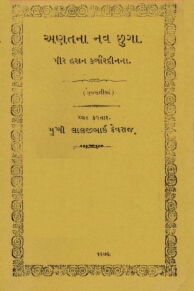 અણતના નવ છુગા.
પીર હસન કબીરદીનના.
(ગુજરાતીમાં)
છપાવનાર.
મુખી લાલજીભાઈ દેવરાજ.